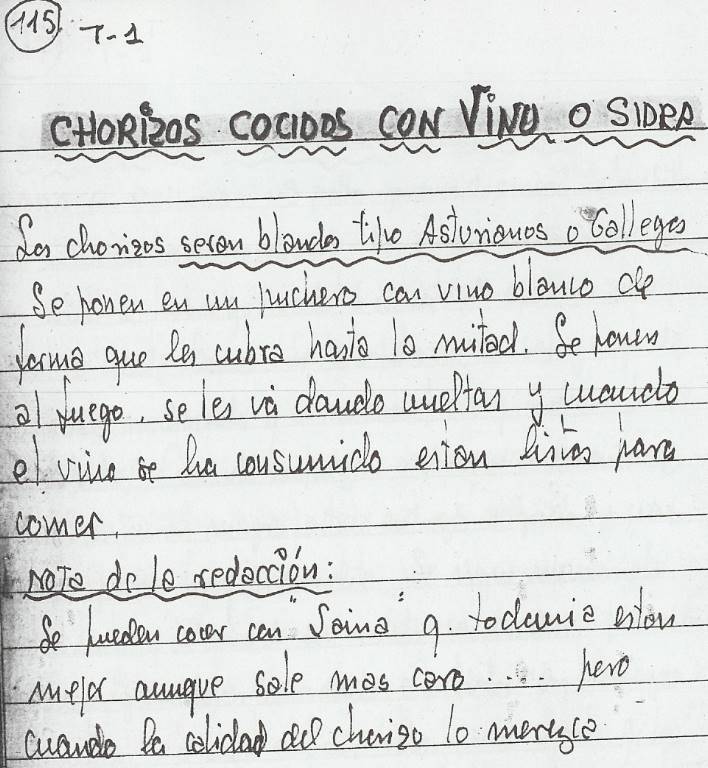 115 T-1
CHORIZOS COCIDOS CON VINO O SIDRA
Los chorizos seran blandos tipo Asturianos o Gallegos
Se ponen en un puchero con vino blanco de
forma que les cubra hasta la mitad. Se ponen
al fuego, se les vá dando vueltas y cuando
el vino se ha consumido estan listos para
comer.
NOTA de la redacción:
Se pueden cocer con " " q. todavia estan
mejor aunque sale mas caro .... pero
cuando la calidad del chorizo lo merezca